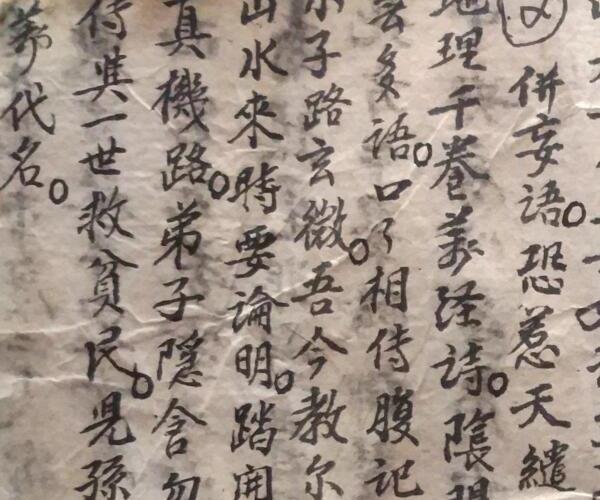 併妄語。恐惹天纏
地理千卷萬經詩。陰
多語。口了相传腹記
子路玄微。吾今教尔
山水來時要論明。踏開
真機路。弟子隱含勿
侍其一世救貧民。児孫
代名。